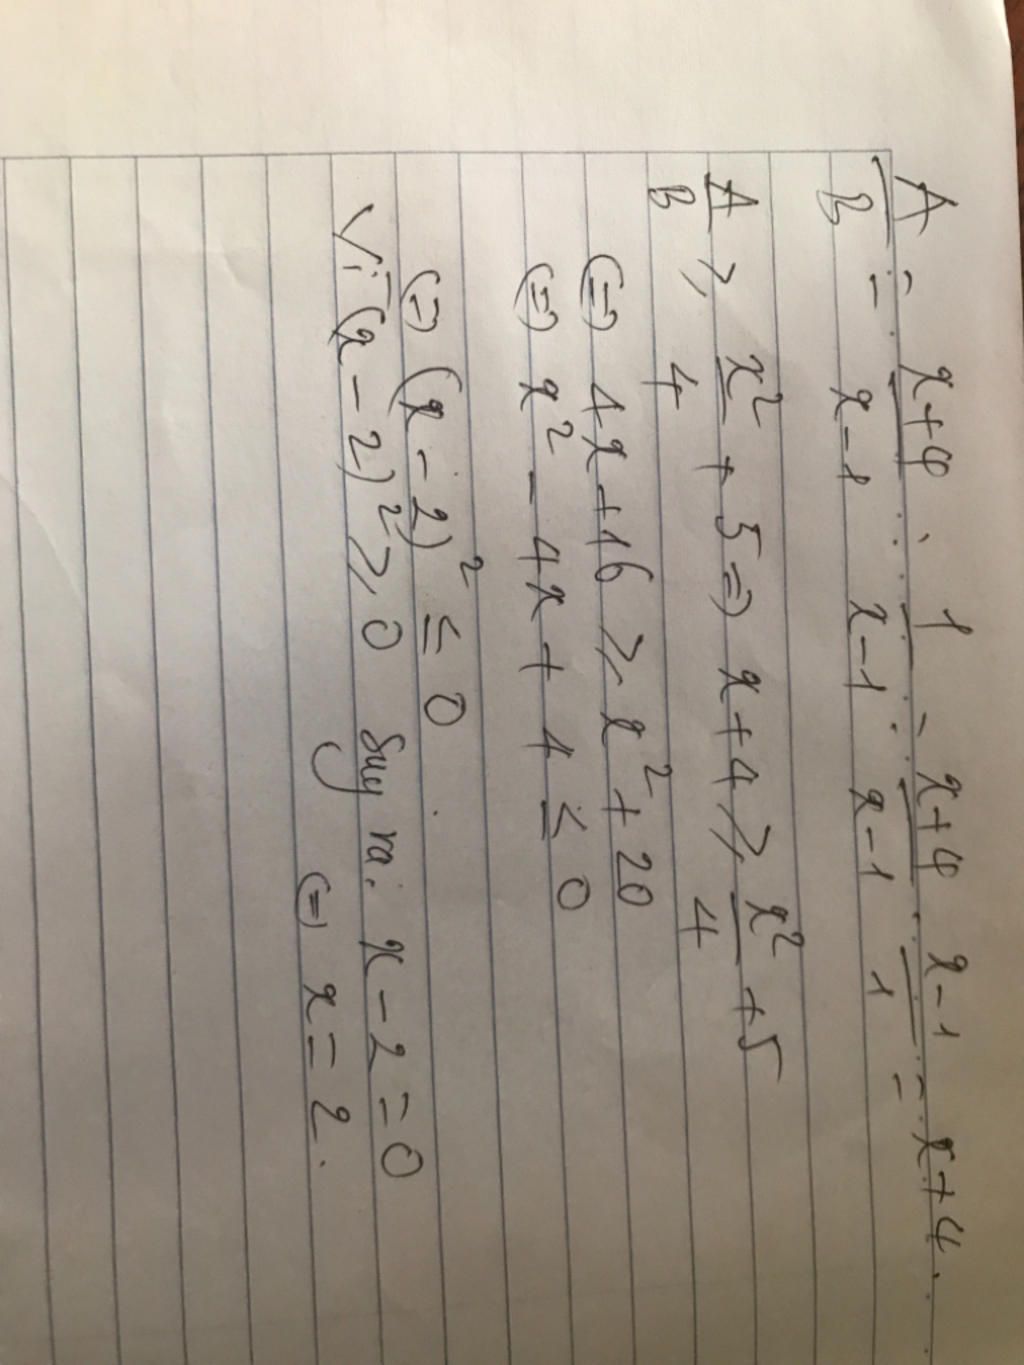 A/B = x+4/x-1 : 1/x-1 = x+4/x-1 . x-1/1 = x+4.
A/B ≥ x²/4 + 5 => x+4 ≥ x²/4 + 5
(=) 4x+16 ≥ x²+20
(=) x² - 4x + 4 ≤ 0
(=) (x-2)² ≤ 0.
Vì (x-2)² ≥ 0 suy ra: x-2=0
(=) x=2.